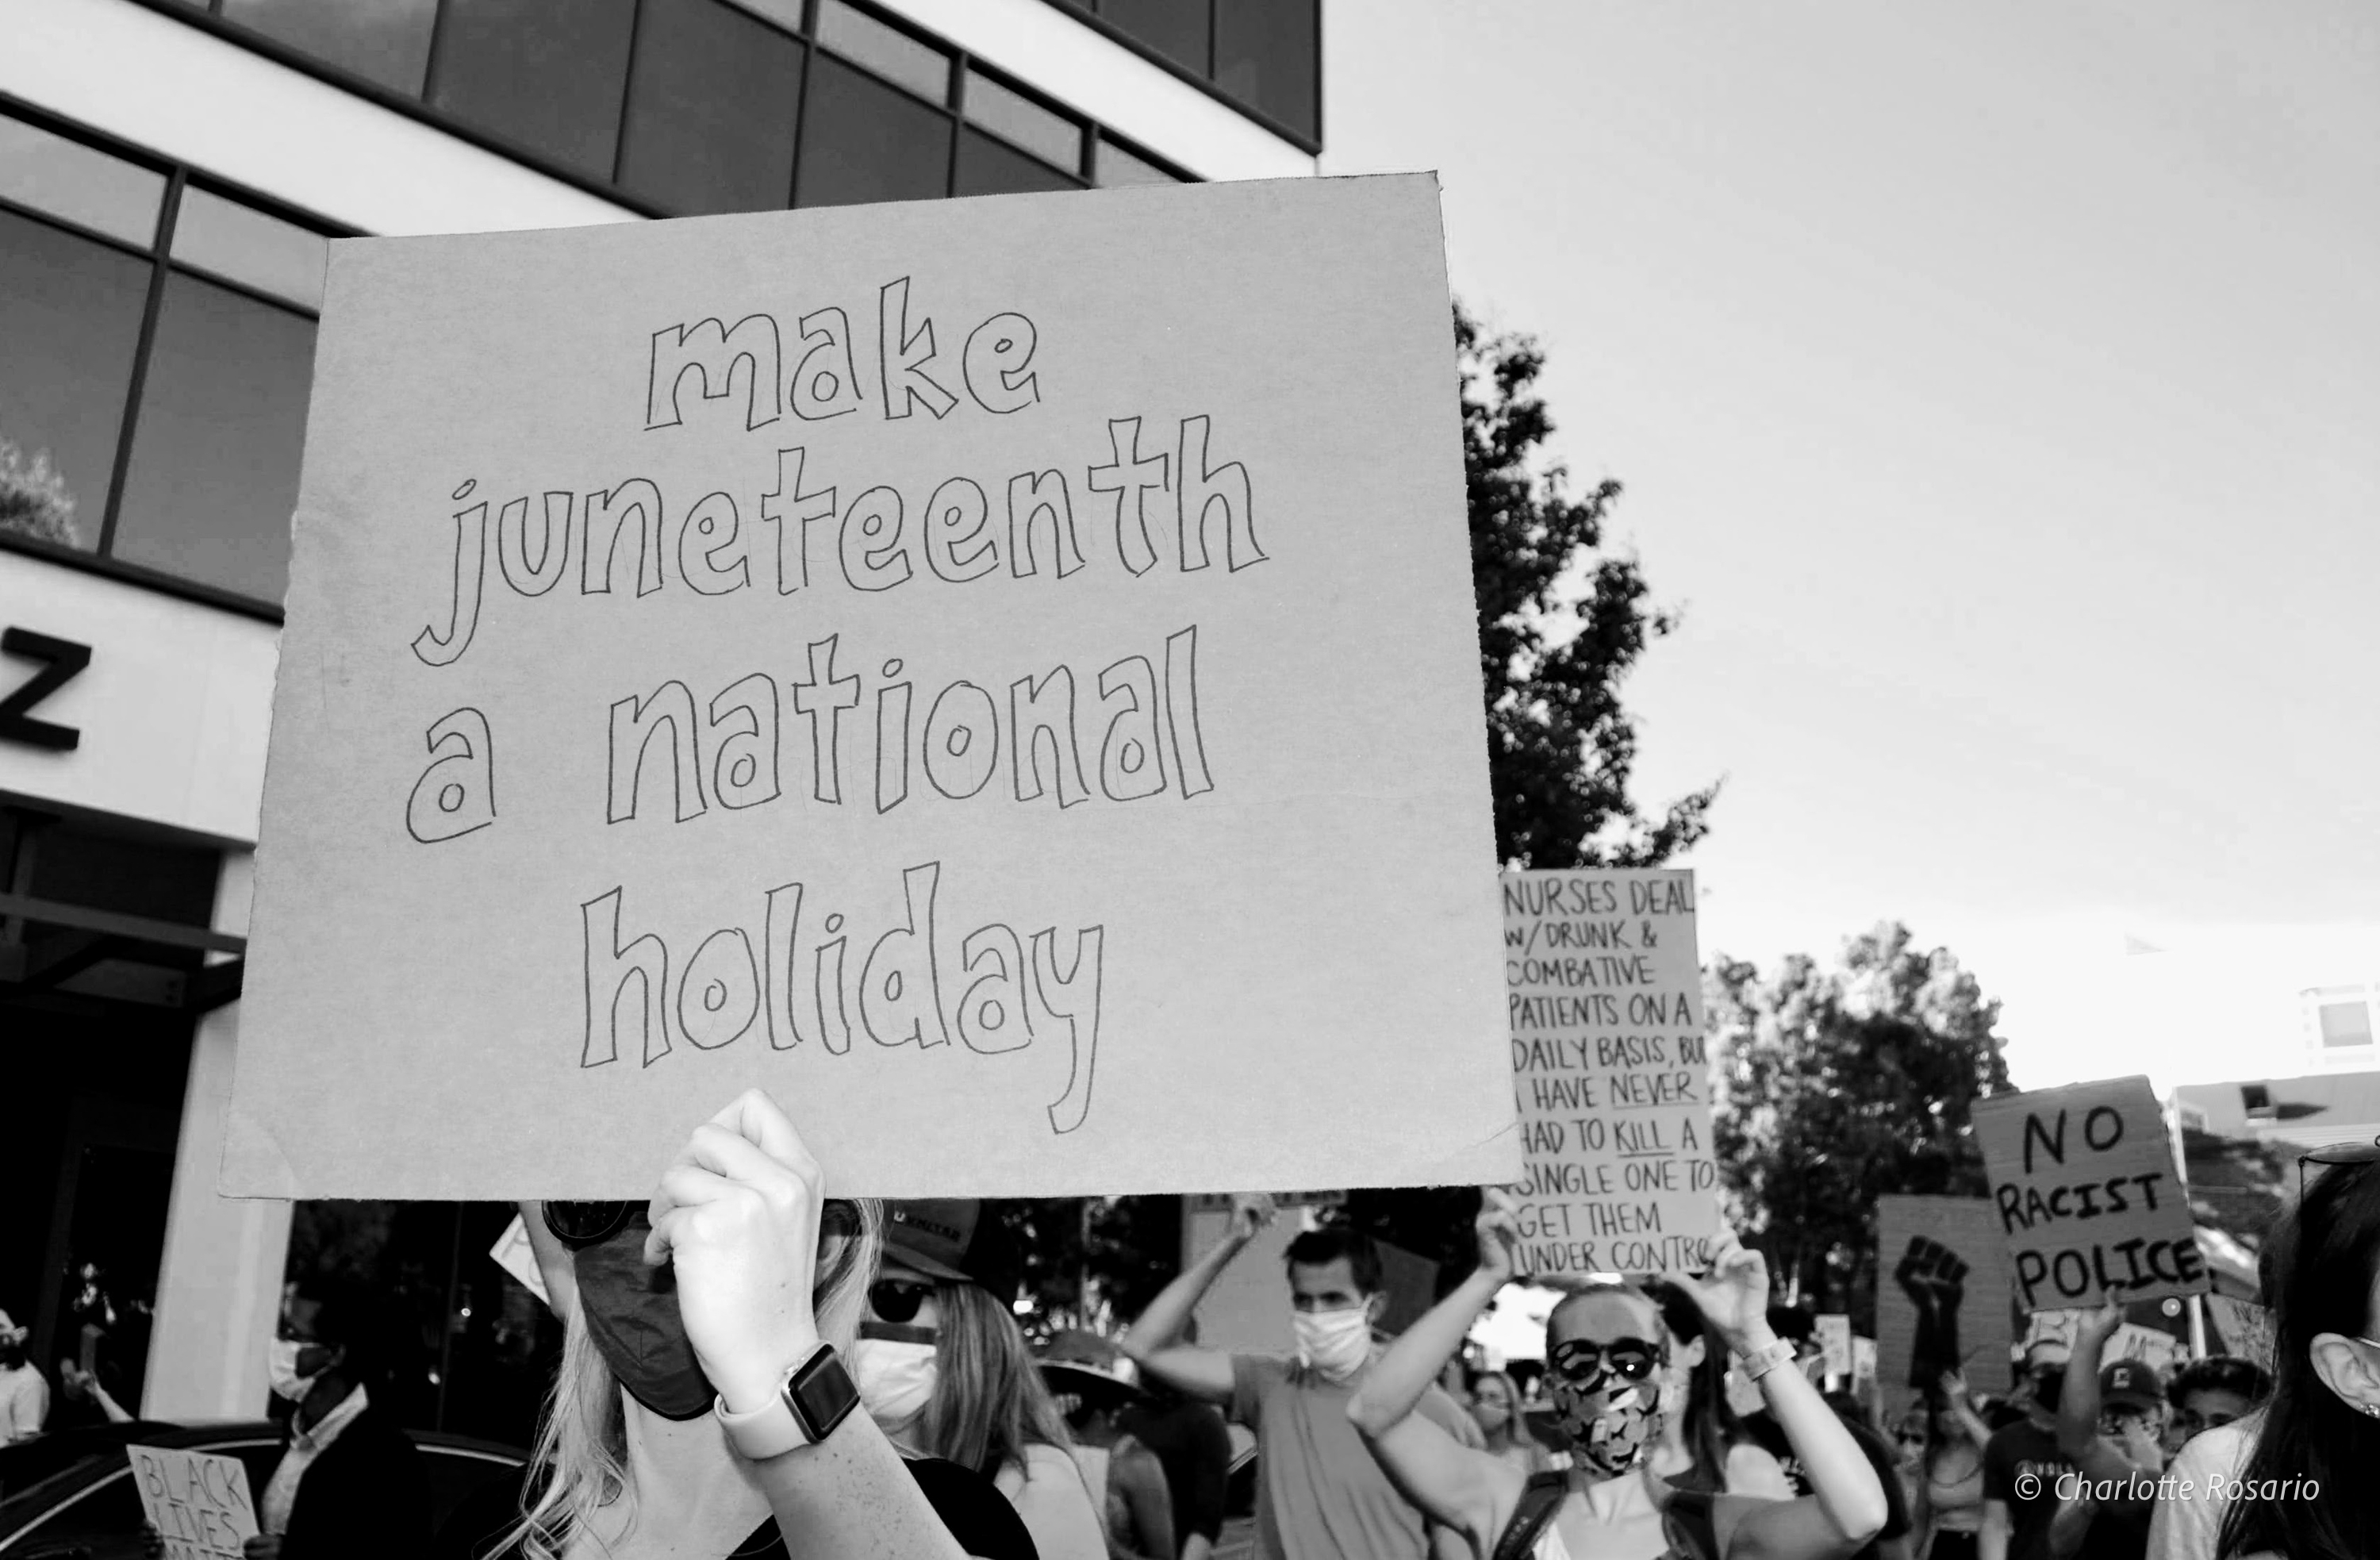 make
juneteenth
a national
holiday
Z
NURSES DEAL
W/DRUNK &
COMBATIVE
PATIENTS ON A
DAILY BASIS, BUT
I HAVE NEVER
HAD TO KILL A
SINGLE ONE TO
GET THEM
UNDER CONTRO
NO
RACIST
POLICE
BLACK
LIVES
© Charlotte Rosario